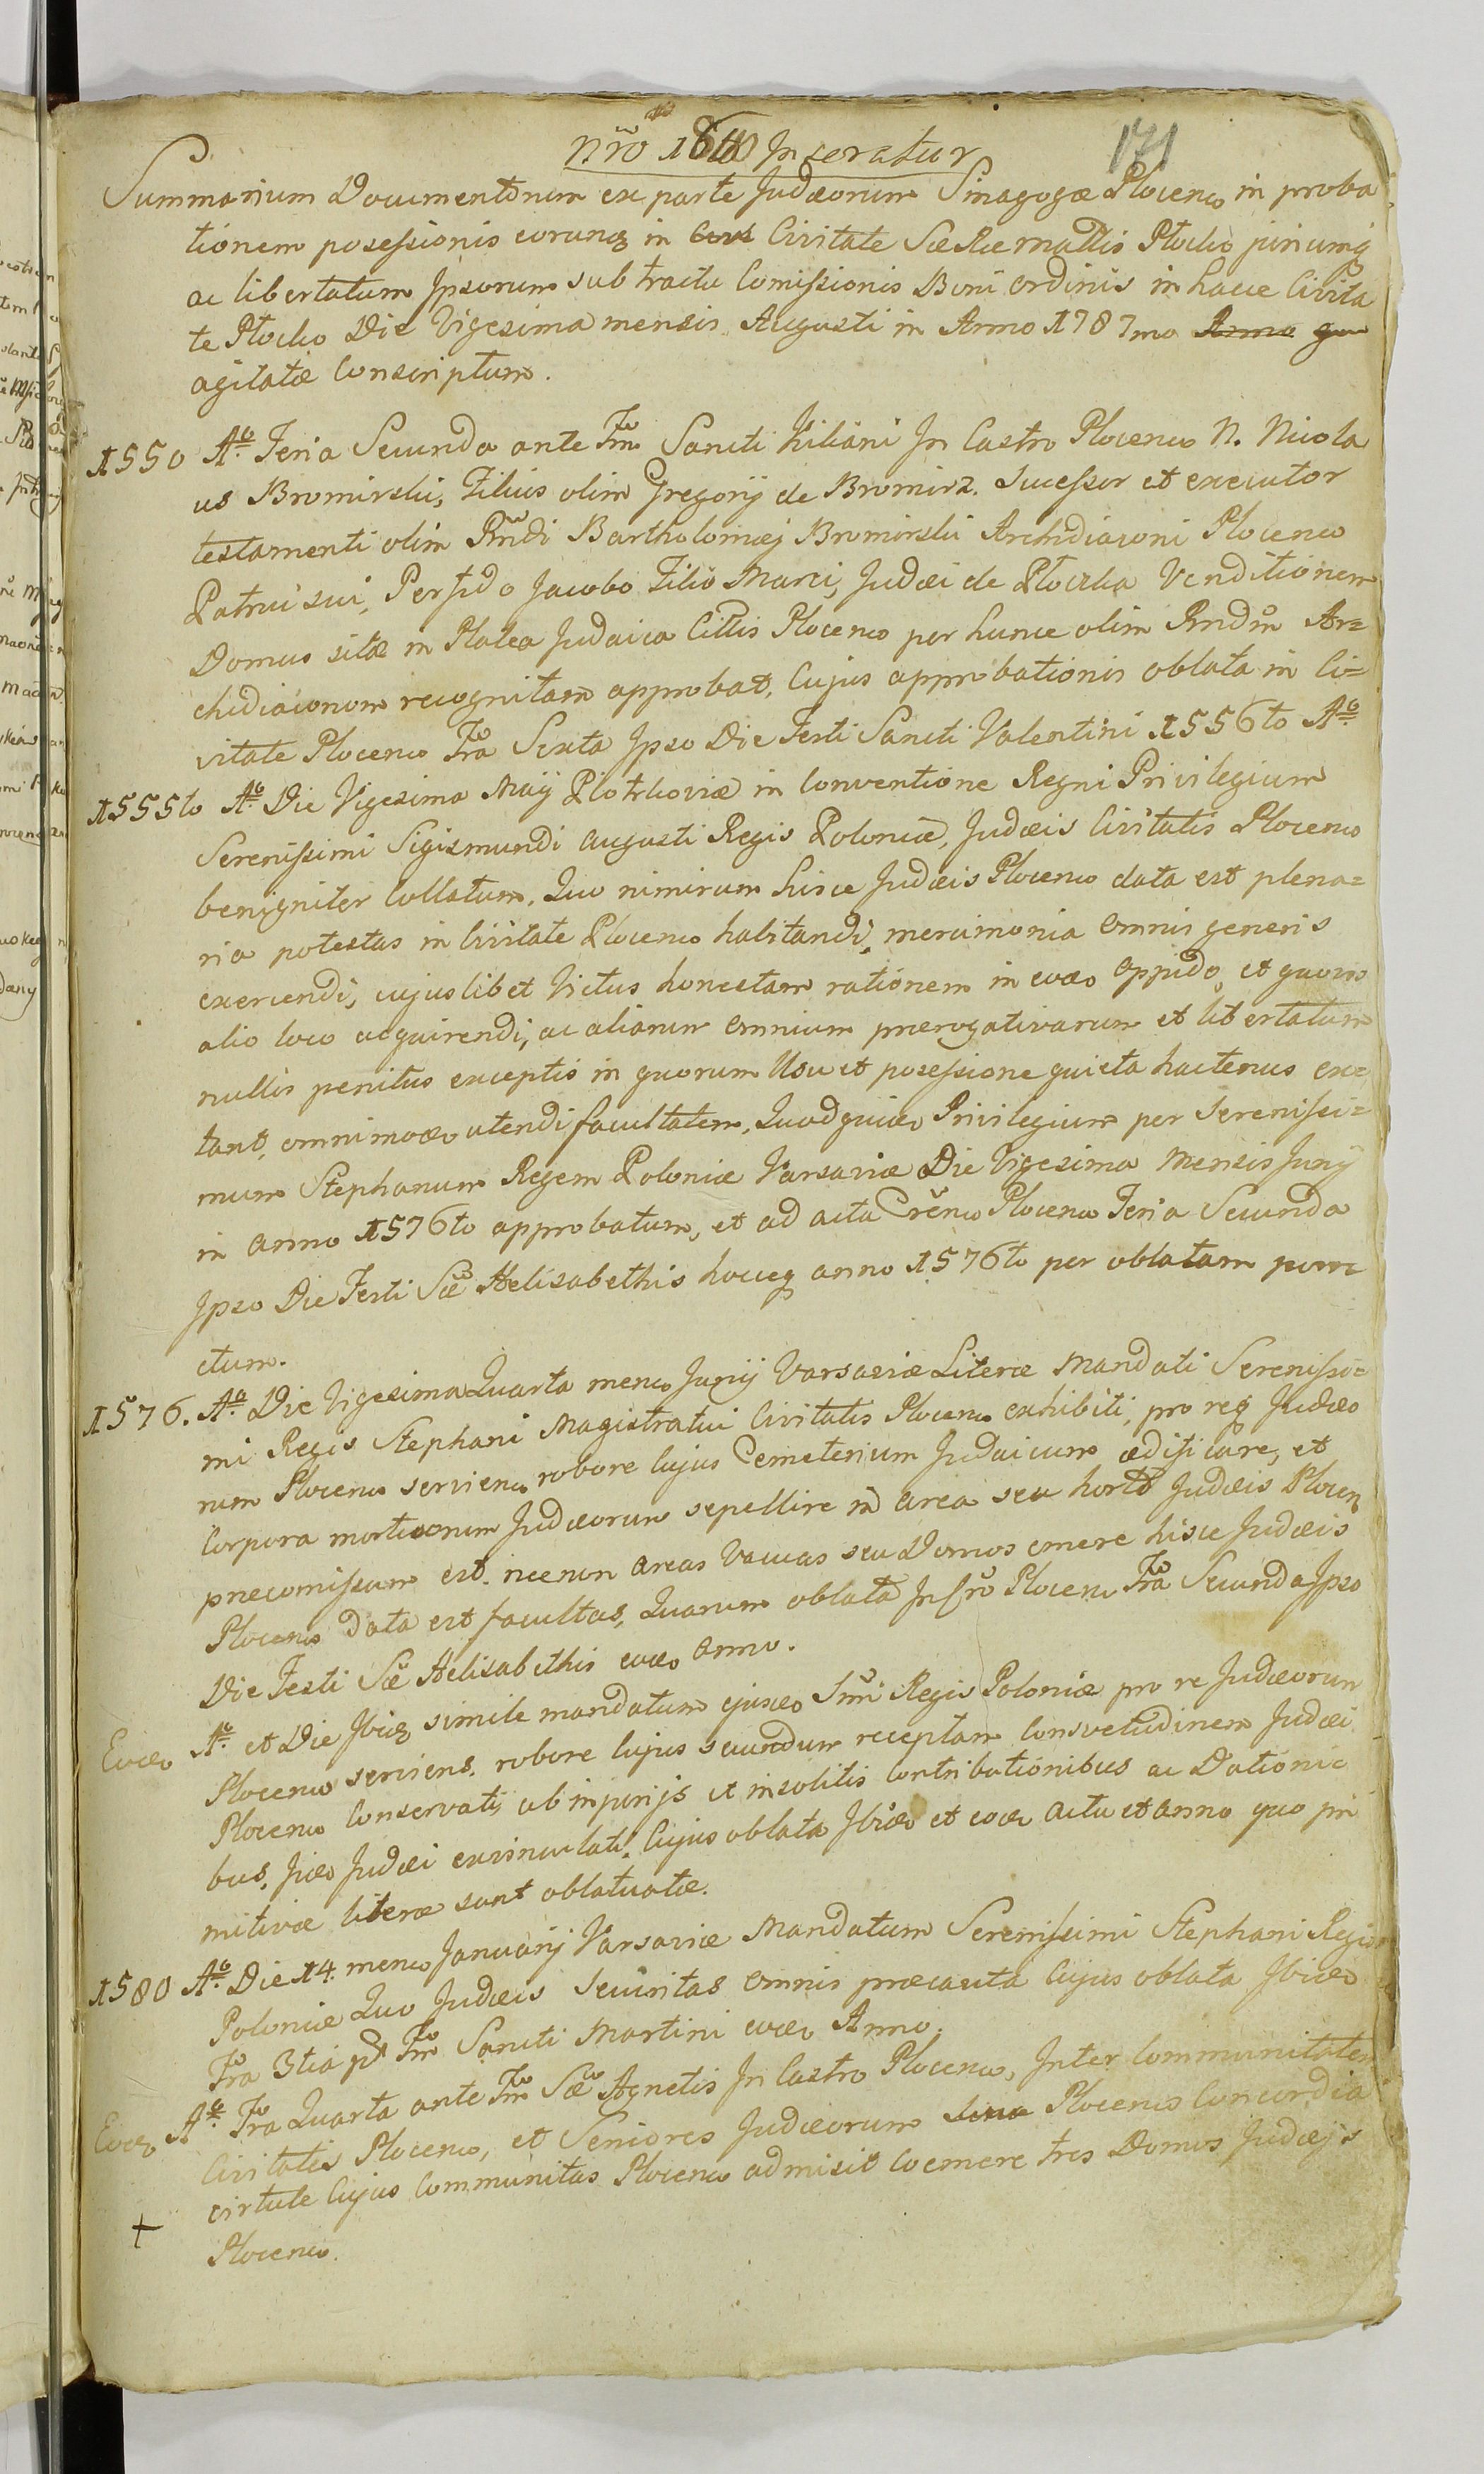 171
Nro Inseratur
Summarium Documentorum ex parte Judæorum Sinagogæ Plocens in proba
tionem possessionis eorumq in Civitate SæRæMattis Płocko jurium q
ac libertatum Ipsorum sub tractu Comissionis Boni ordinis in hacce Civita
te Płocko Die Vigesima mensis Augusti in Anno 1787mo
agitatæ Conscriptum.
1550 Ao Feria Secunda ante Ftm Sancti Kiliani In Castro Plocens N. Nicola
us Bromirski, Filius olim Gregorij de Bromirz. Sucessor et executor
testamenti olim Rndi Bartholomæj Bromirski Archidiaconi Plocens
Patrui sui, Perfido Jacobo Filio Marci, Judæi de Płocka Venditionem
Domus sitæ in Platea Judaica Cittis Plocens per hunce olim Rndm Ar=
chidiaconum recognitam approbat, Cujus approbationis oblata in Ci=
vitate Plocens Fra Sexta Ipso Die Festi Sancti Valentini 1556to Ao
1555to Ao Die Vigesima Maij Piotrkoviæ in Conventione Regni Privilegium
Serenissimi Sigismundi Augusti Regis Poloniæ, Judæis Civitatis Plocens
benigniter Collatum, Quo nimirum hisce Judæis Plocens data est plena=
ria potestas in Civitate Plocens habitandi, mercimonia omnis generis
exercendi, cujuslibet Victus honestam rationem in eodo oppido, et quovis
alio loco acquirendi, ac aliarum omnium prærogativarum et libertatum
nullis penitus exceptis in quorum Usu et possessione quieta hactenus exs
tant, omnimodo utendi facultatem, Quodquido Privilegium per Serenissi=
mum Stephanum Regem Poloniæ Varsaviæ Die Vigesima Mensis Junij
in anno 1576to approbatum, et ad acta Crens Plocens Feria Secunda
Ipso Die Festi Sæ Helisabethis hocceq anno 1576to per oblatam porre
ctum.
1576. Ao Die Vigesima Quarta mens Junij Varsaviæ Literæ Mandati Serenissi=
mi Regis Stephani Magistratui Civitatis Plocens exhibiti, pro req Judæo
rum Plocens serviens robore Cujus Cemeterium Judaicum ædificare, et
Corpora mortuorum Judæorum sepellire in area seu horto Judæis Plocen
præcomissum est. necnon areas Vacuas seu Domos emere hisce Judæis
Plocens data est facultas, Quarum oblata In Cro Plocens Fra Secunda Ipso
Die Festi Sæ Helisabethis eodo anno.
Eodo Ao et Die Ibido simile mandatum ejusdo Smi Regis Poloniæ pro re Judæorum
Plocens serviens. robore Cujus secundum receptam Consvetudinem Judæi
Plocens Conservati, ab injurijs et insolitis Contributionibus ac Dationi
bus, ijdo Judæi exvinculati, Cujus oblata Ibido et eodo actu et anno quo pri
mitivæ literæ sunt oblatuatæ.
1580 Ao Die 14. mens Januarij Varsaviæ Mandatum Serenissimi Stephani Regis
Poloniæ Quo Judæis Securitas omnis præcauta Cujus oblata Ibido
Fra 3tia pt Ftm Sancti Martini eodo Anno.
Eodo Ao Fra Quarta ante Ftm Sæ Agnetis In Castro Plocens, Inter Communitatem
Civitatis Plocens, et Seniores Judæorum Plocens Concordia
virtute Cujus Communitas Plocens admisit Coemere tres Domos Judæjs
Plocens.